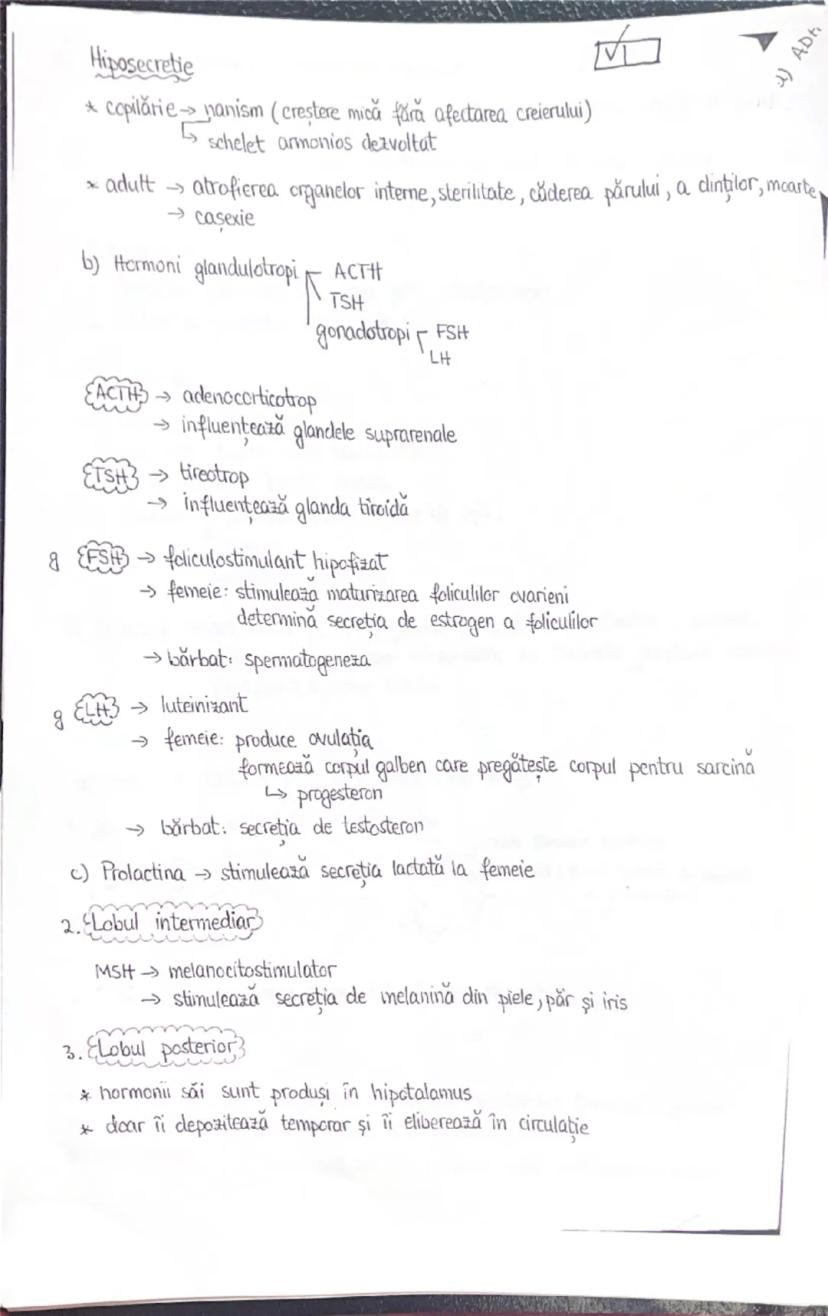 Hiposecreție
VI
a) ADH
* copilărie → nanism (creștere mică fără afectarea creierului)
↳ schelet armonios dezvoltat
* adult → atrofierea organelor interne, sterilitate, căderea părului, a dinților, moarte
→ cașexie
b) Hormoni glandulotropi ACTH
TSH
gonadotropi FSH
LH
ACTH → adenocorticotrop
→ influențează glandele suprarenale
TSH → tireotrop
→ influențează glanda tiroidă
g FSH → foliculostimulant hipofizat
→ femeie: stimulează maturizarea foliculilor ovarieni
determină secreția de estrogen a foliculilor
→ bărbat: spermatogeneza
g LH → luteinizant
→ femeie: produce ovulația
formează corpul galben care pregătește corpul pentru sarcină
↳ progesteron
→ bărbat: secreția de testosteron
c) Prolactina → stimulează secreția lactată la femeie
2. Lobul intermediar
MSH → melanocitostimulator
→ stimulează secreția de melanină din piele, păr și iris
3. Lobul posterior
* hormonii săi sunt produși în hipotalamus
* doar îi depozitează temporar și îi eliberează în circulație